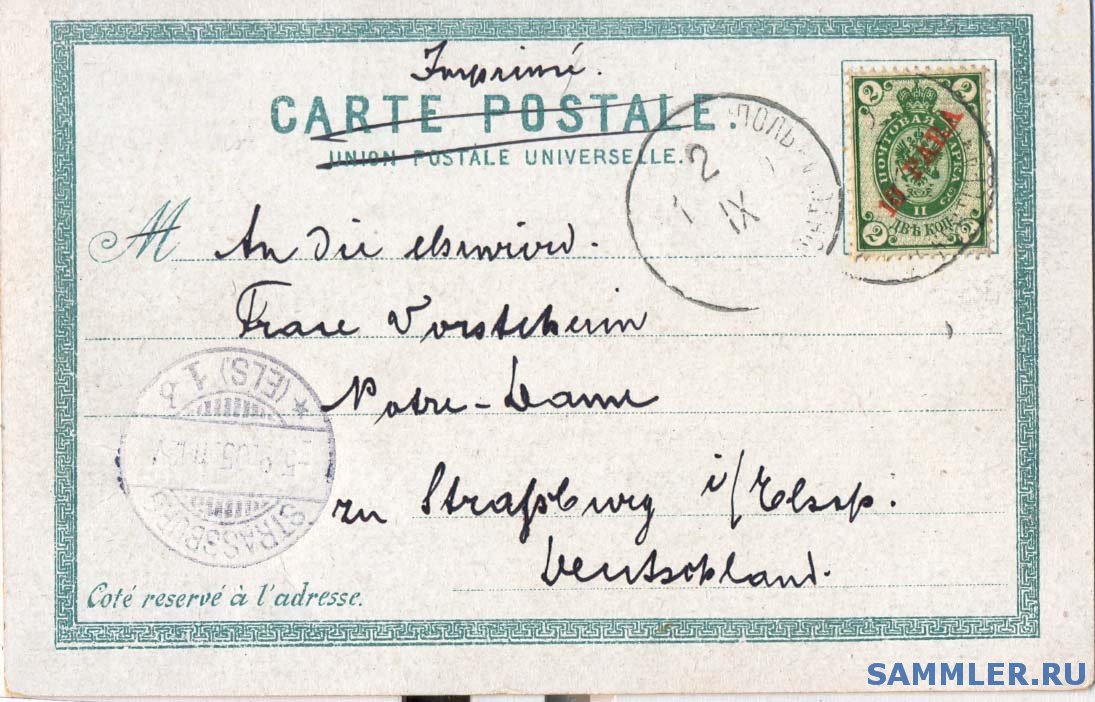 Imprimé.
CARTE POSTALE.
UNION POSTALE UNIVERSELLE.
2
ПОЧТОВАЯ МАРКА
10 PARA
II
ДВѢ КОП.
2
1 2
IX
ПОЛЬ
M An die ehrwürd.
Frau Vorsteherin
Notre-Dame
zu Straßburg i/Elsaß.
Deutschland.
STRASSBURG
* (ELS) 1
Coté reservé à l'adresse.
SAMMLER.RU